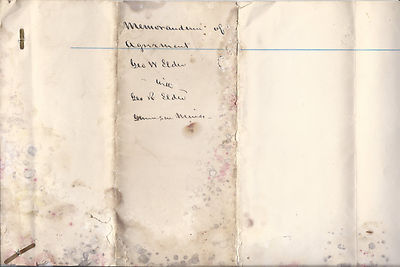 Memorandum of
Agreement
Geo W Elder
with
Geo R Elder